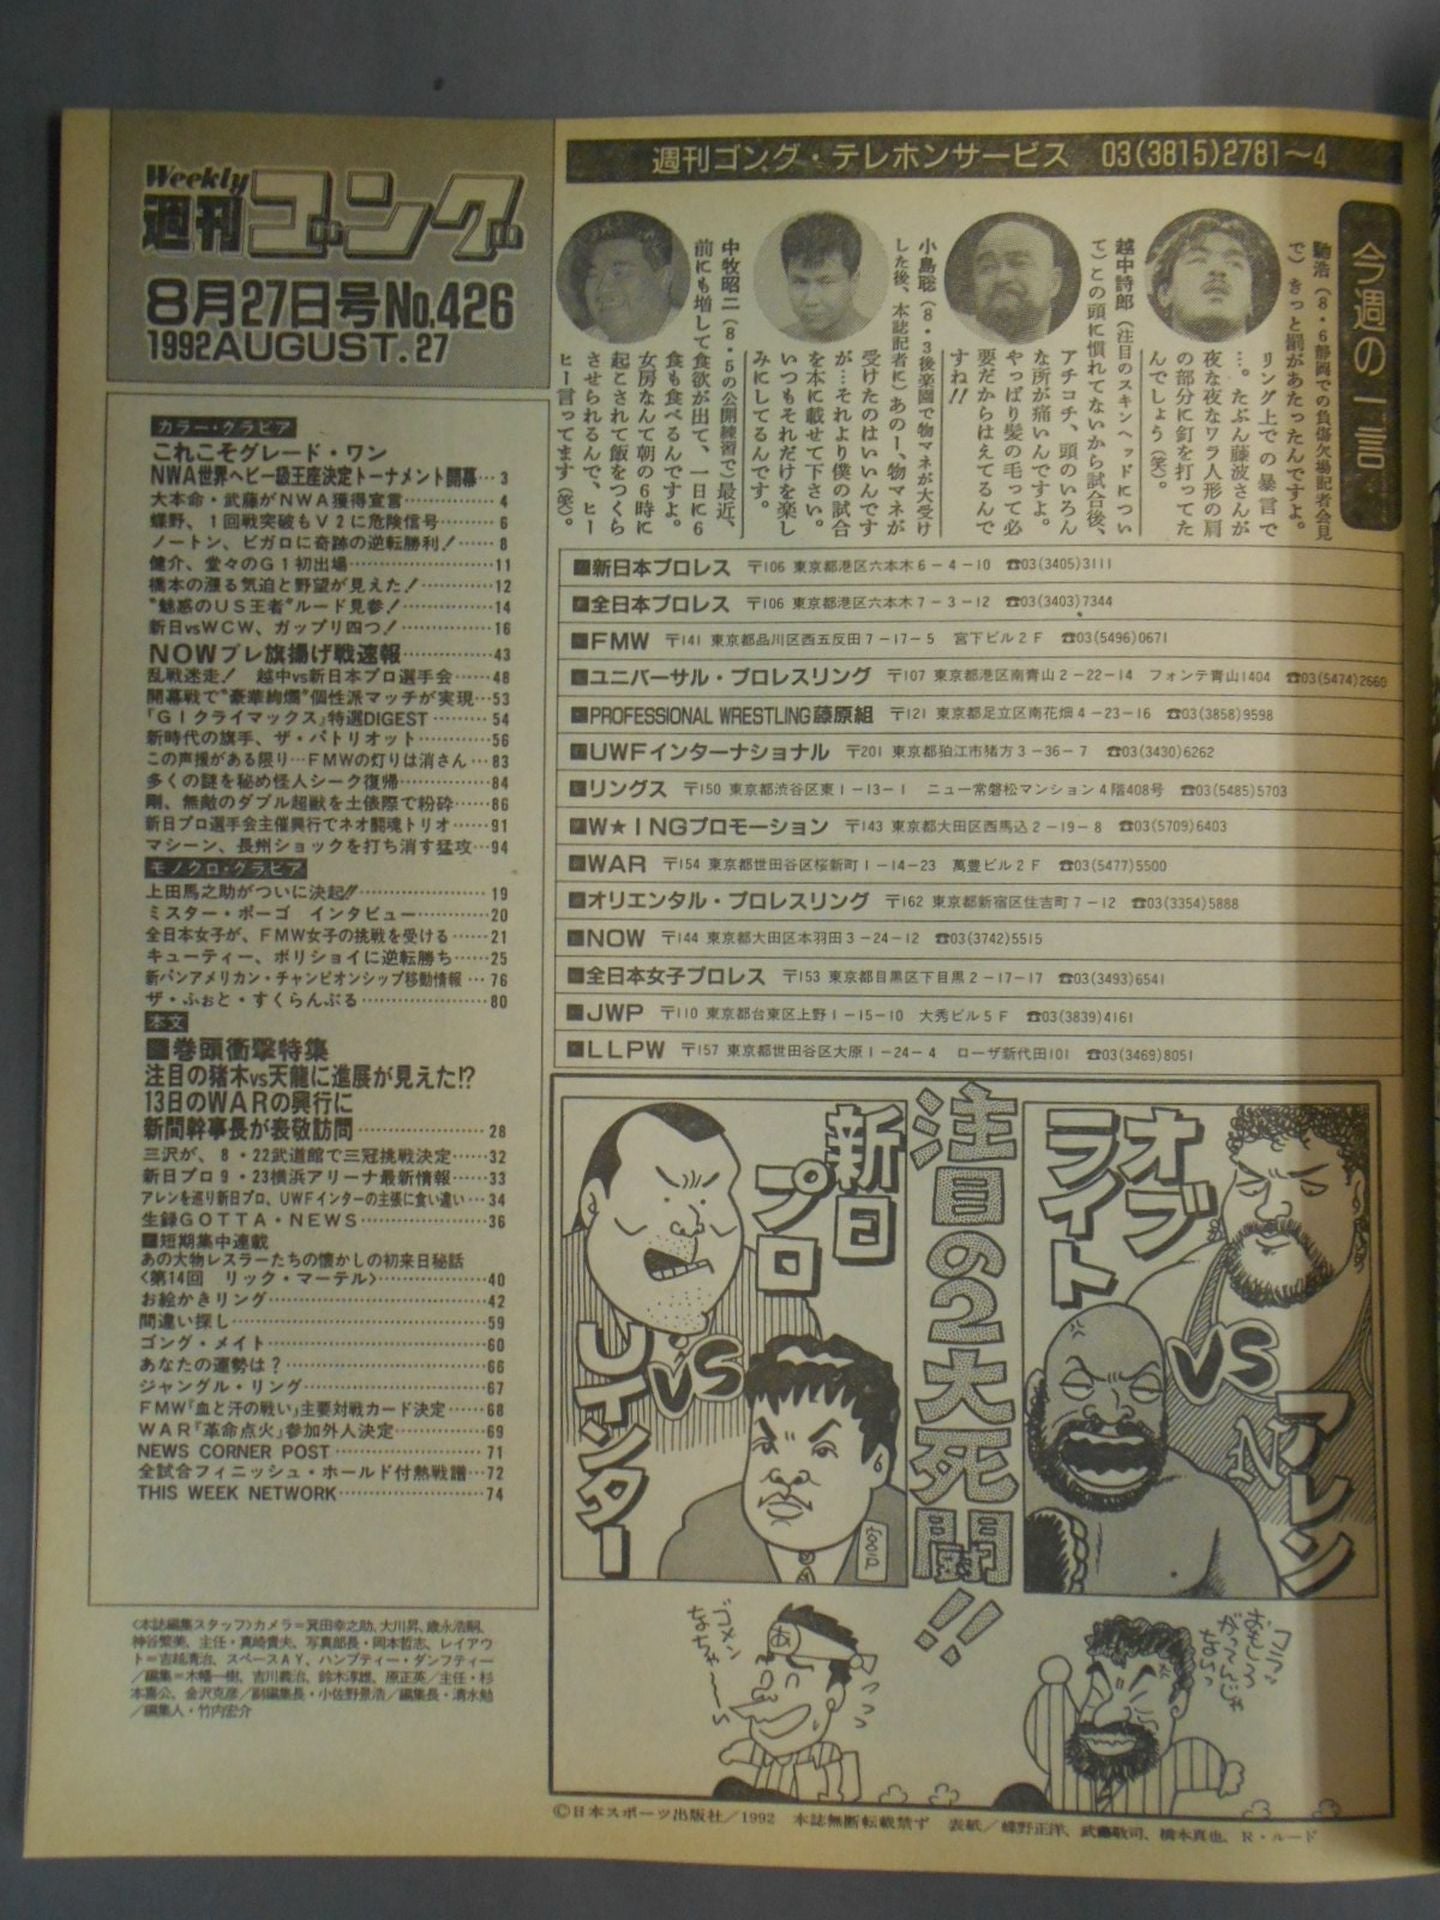 Weekly
週刊ゴング
8月27日号No.426
1992 AUGUST. 27
カラー・グラビア
これこそグレード・ワン
NWA世界ヘビー級王座決定トーナメント開幕…3
大本命・武藤がNWA獲得宣言…………4
蝶野、1回戦突破もV2に危険信号………6
ノートン、ビガロに奇跡の逆転勝利!……8
健介、堂々のG1初出場………………11
橋本の漲る気迫と野望が見えた!…………12
"魅惑のUS王者"ルード見参!……………14
新日vsWCW、ガップリ四つ!……………16
NOWプレ旗揚げ戦速報……………43
乱戦迷走! 越中vs新日本プロ選手会……48
開幕戦で"豪華絢爛"個性派マッチが実現…53
『G1クライマックス』特選DIGEST………54
新時代の旗手、ザ・パトリオット…………56
この声援がある限り…FMWの灯りは消さん…83
多くの謎を秘め怪人シーク復帰……………84
剛、無敵のダブル超獣を土俵際で粉砕……86
新日プロ選手会主催興行でネオ闘魂トリオ……91
マシーン、長州ショックを打ち消す猛攻…94
モノクロ・グラビア
上田馬之助がついに決起!!…………………19
ミスター・ポーゴ インタビュー…………20
全日本女子が、FMW女子の挑戦を受ける……21
キューティー、ボリショイに逆転勝ち……25
新パンアメリカン・チャンピオンシップ移動情報…76
ザ・ふぉと・すくらんぶる…………………80
本文
■巻頭衝撃特集
注目の猪木vs天龍に進展が見えた!?
13日のWARの興行に
新間幹事長が表敬訪問…………………28
三沢が、8・22武道館で三冠挑戦決定……32
新日プロ9・23横浜アリーナ最新情報……33
アレンを巡り新日プロ、UWFインターの主張に食い違い…34
生録GOTTA・NEWS…………………36
■短期集中連載
あの大物レスラーたちの懐かしの初来日秘話
〈第14回 リック・マーテル〉………………40
お絵かきリング………………………………42
間違い探し……………………………………59
ゴング・メイト………………………………60
あなたの運勢は?……………………………66
ジャングル・リング…………………………67
FMW『血と汗の戦い』主要対戦カード決定……68
WAR『革命点火』参加外人決定……………69
NEWS CORNER POST……………………71
全試合フィニッシュ・ホールド付熱戦譜…72
THIS WEEK NETWORK……………………74
〈本誌編集スタッフ〉カメラ=箕田幸之助、大川昇、歳永浩嗣、
神谷繁美、主任・真崎貴夫、写真部長・岡本哲志、レイアウ
ト=吉越清治、スペースAY、ハンプティー・ダンプティー
/編集=木幡一樹、吉川義治、鈴木淳雄、原正英/主任・杉
本喜公、金沢克彦/副編集長・小佐野景浩/編集長・清水勉
/編集人・竹内宏介
週刊ゴング・テレホンサービス 03(3815)2781〜4
今週の一言
馳浩(8・6静岡での負傷欠場記者会見
で)きっと罰があたったんですよ。
リング上での暴言で
…。たぶん藤波さんが
夜な夜なワラ人形の肩
の部分に釘を打ってた
んでしょう(笑)。
越中詩郎(注目のスキンヘッドについ
て)この頭に慣れてないから試合後、
アチコチ、頭のいろん
な所が痛いんですよ。
やっぱり髪の毛って必
要だからはえてるんで
すね!!
小島聡(8・3後楽園で物マネが大受け
した後、本誌記者に)あのー、物マネが
受けたのはいいんです
が…それより僕の試合
を本に載せて下さい。
いつもそれだけを楽し
みにしてるんです。
中牧昭二(8・5の公開練習で)最近、
前にも増して食欲が出て、一日に6
食も食べるんですよ。
女房なんて朝の6時に
起こされて飯をつくら
させられるんで、ヒー
ヒー言ってます(笑)。
■新日本プロレス 〒106 東京都港区六本木6-4-10 ☎03(3405)3111
■全日本プロレス 〒106 東京都港区六本木7-3-12 ☎03(3403)7344
■FMW 〒141 東京都品川区西五反田7-17-5 宮下ビル2F ☎03(5496)0671
■ユニバーサル・プロレスリング 〒107 東京都港区南青山2-22-14 フォンテ青山1404 ☎03(5474)2660
■PROFESSIONAL WRESTLING藤原組 〒121 東京都足立区南花畑4-23-16 ☎03(3858)9598
■UWFインターナショナル 〒201 東京都狛江市猪方3-36-7 ☎03(3430)6262
■リングス 〒150 東京都渋谷区東1-13-1 ニュー常磐松マンション4階408号 ☎03(5485)5703
■W★INGプロモーション 〒143 東京都大田区西馬込2-19-8 ☎03(5709)6403
■WAR 〒154 東京都世田谷区桜新町1-14-23 萬豊ビル2F ☎03(5477)5500
■オリエンタル・プロレスリング 〒162 東京都新宿区住吉町7-12 ☎03(3354)5888
■NOW 〒144 東京都大田区本羽田3-24-12 ☎03(3742)5515
■全日本女子プロレス 〒153 東京都目黒区下目黒2-17-17 ☎03(3493)6541
■JWP 〒110 東京都台東区上野1-15-10 大秀ビル5F ☎03(3839)4161
■LLPW 〒157 東京都世田谷区大原1-24-4 ローザ新代田101 ☎03(3469)8051
注目の2大死闘!!
オブライト
VS
アレン
N
新日プロ
VS
Uインター
ゴメン
なちゃ〜い
あ
っっっ
コラッ
おもしろ
がってんじゃ
ないっ
©日本スポーツ出版社/1992 本誌無断転載禁ず 表紙/蝶野正洋、武藤敬司、橋本真也、R・ルード